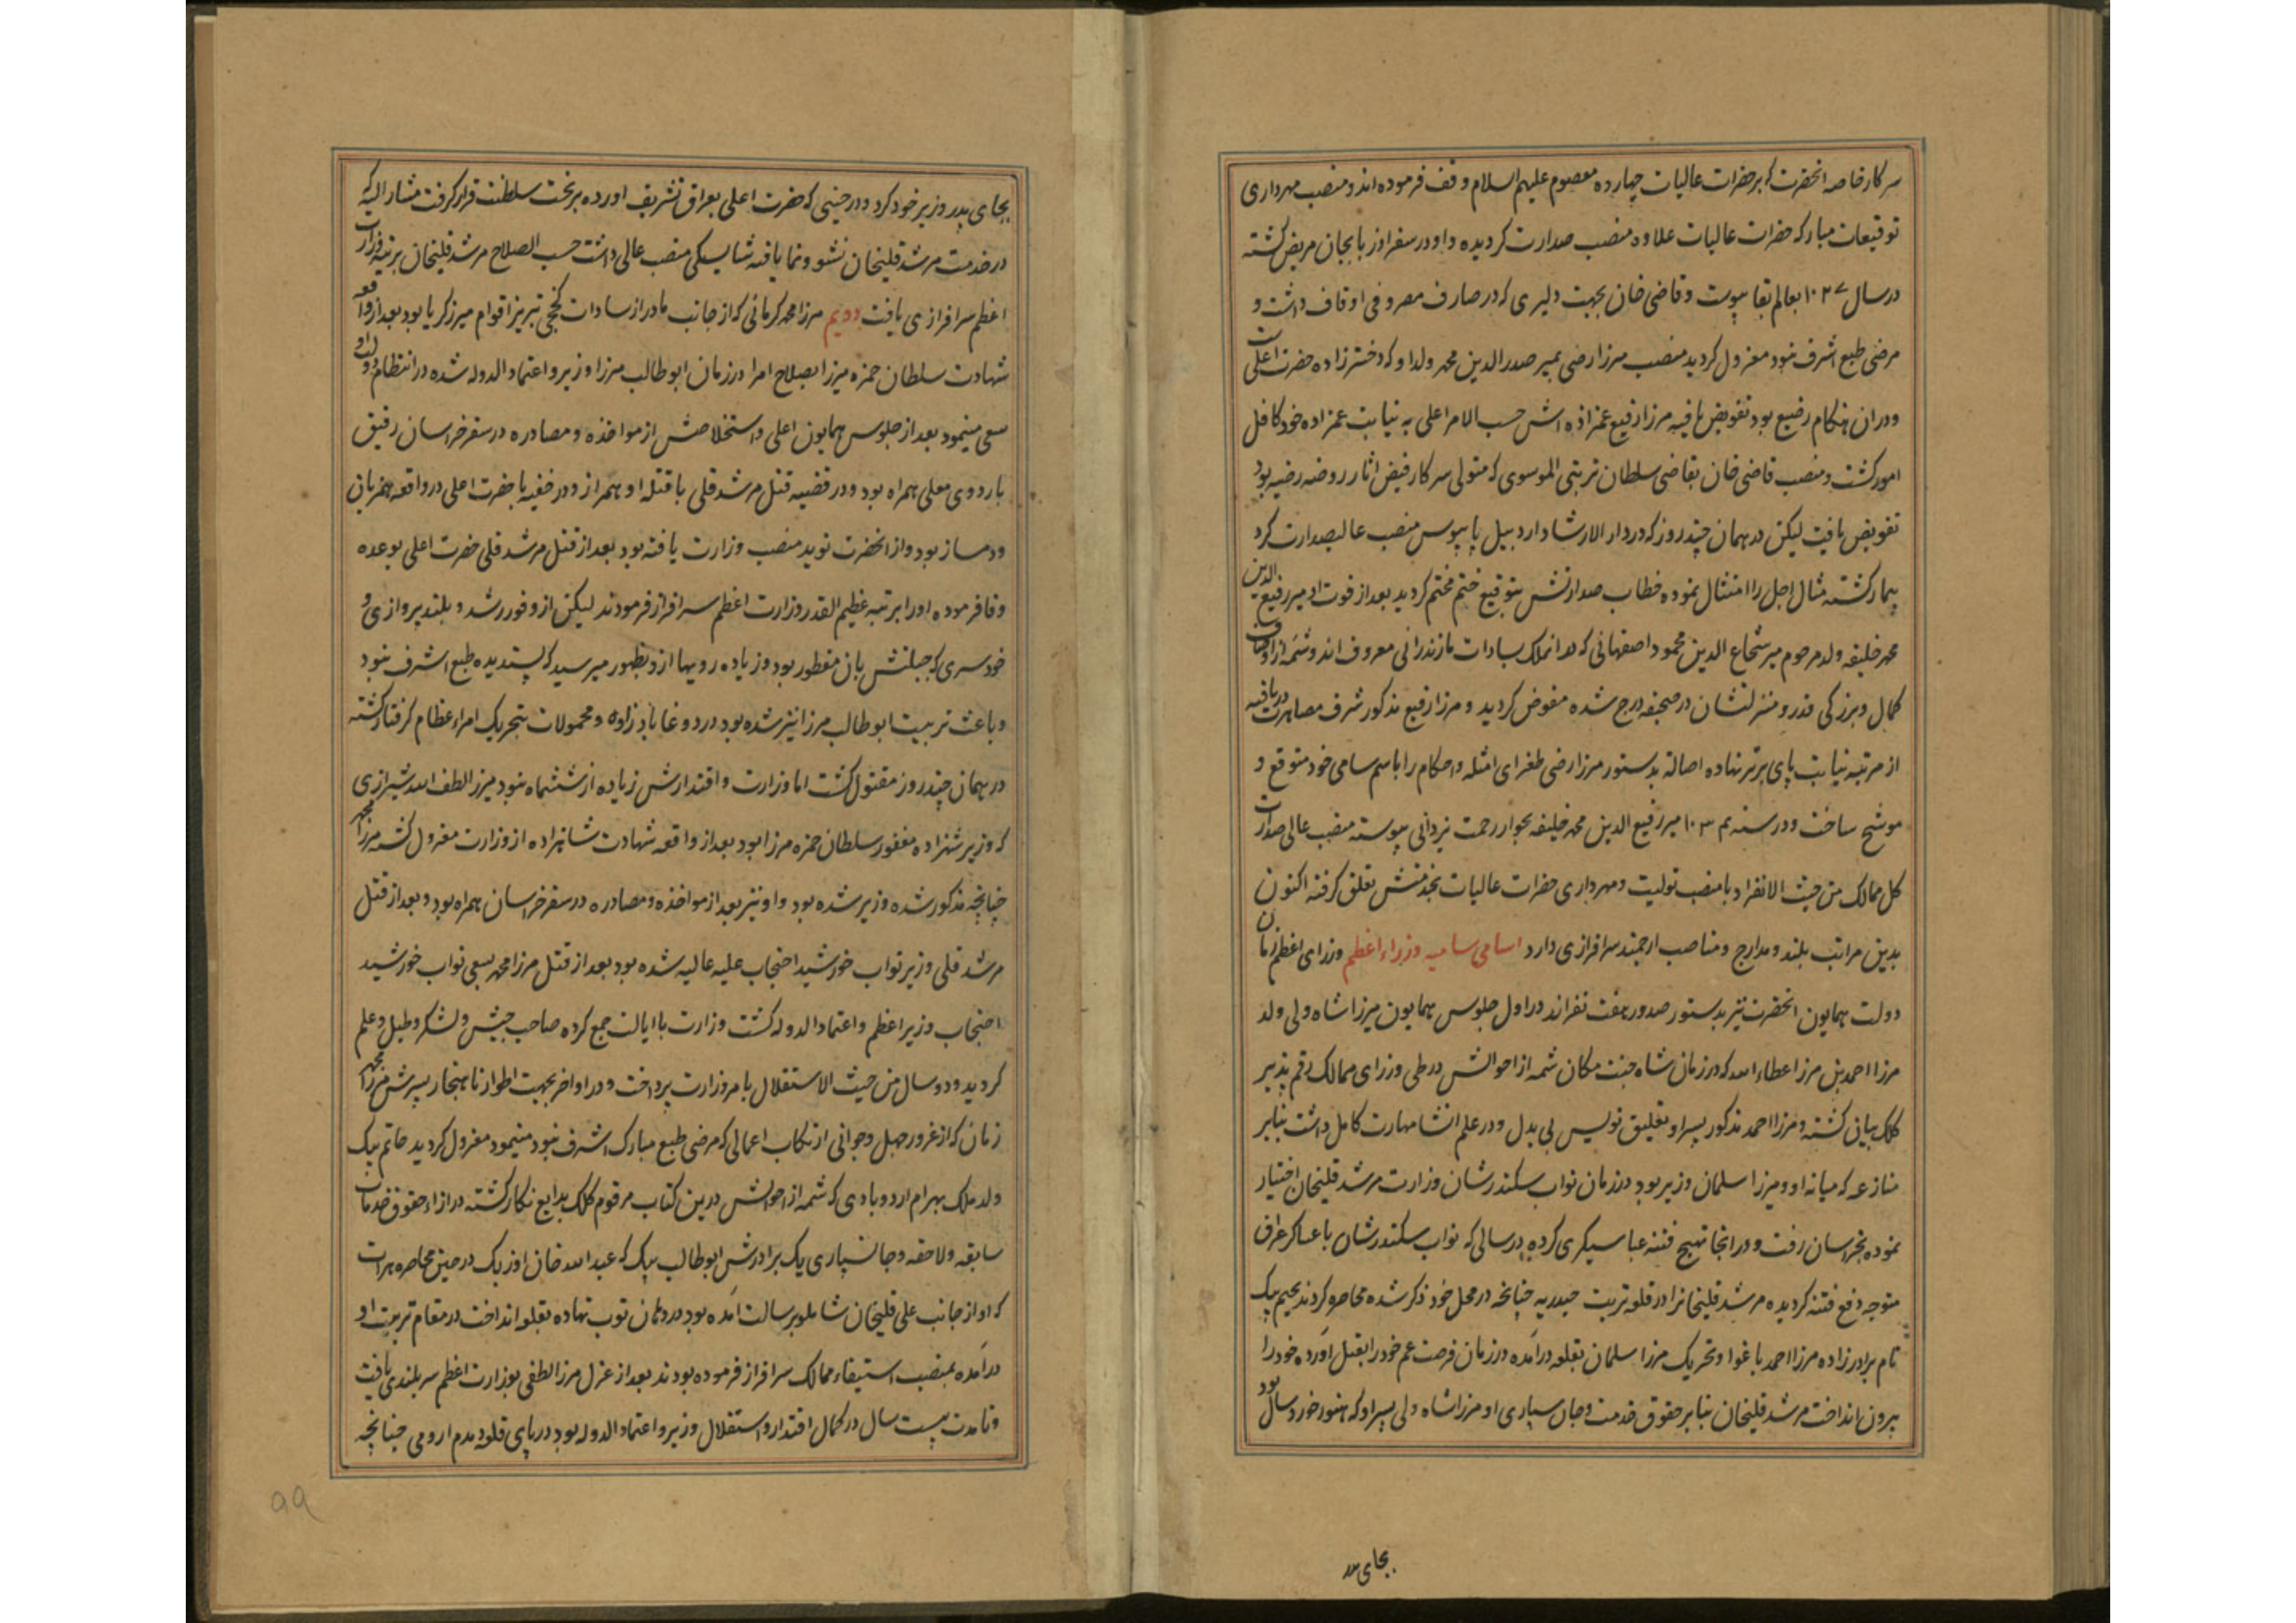 سرکار خاصه انحضرت که بر حضرات عالیات چهارده معصوم علیهم السلام وقف فرموده اند و منصب مهرداری
توقیعات مبارکه حضرات عالیات علاوه منصب صدارت کردیده و او در سفر اذربایجان مریض کشته
در سال ۱۰۲۷ بعالم بقا پیوست و قاضی خان بجهت دلیری که در صارف مصروفی اوقاف داشت و
مرضی طبع اشرف نبود معزول کردید منصب میرزا رضی بمیر صدرالدین محمد ولد او که دخترزاده حضرت اعلی است
و در ان هنکام رضیع بود تفویض یافته میرزا رفیع عمزاده اش حسب الامر اعلی به نیابت عمزاده خود کافل
امور کشت و منصب قاضی خان بقاضی سلطان تربتی الموسوی که متولی سرکار فیض اثار روضه رضیه بود
تفویض یافت لیکن در همان چند روز که در دار الارشاد اردبیل پایبوس منصب عالیصدارت کرد
بیمار کشته مثال اجل را امتثال نموده خطاب صدارتش بتوقیع ختم مختم کردید بعد از فوت او میر رفیع الدین
محمد خلیفه ولد مرحوم میر شجاع الدین محمود اصفهانی که در انملک بسادات مازندرانی معروف اند و شمه از اوصاف
کمال و بزرکی قدر و منزلتشان در صحیفه درج شده مفوض کردید و میرزا رفیع مذکور شرف مصاهرت دریافته
از مرتبه نیابت پای برتر نهاده اصالة بدستور میرزا رضی طغرای امثله و احکام را باسم سامی خود متوقع و
موشح ساخت و در سنه ۱۰۳ میر رفیع الدین محمد خلیفه بجوار رحمت یزدانی پیوسته منصب عالی صدارت
کل ممالک من حیث الانفراد با منصب تولیت و مهرداری حضرات عالیات بخدمتش تعلق کرفته اکنون
بدین مراتب بلند و مدارج و مناصب ارجمند سرافرازی دارد اسامی سامیه وزراء اعظم وزرای اعظم زمان
دولت همایون انحضرت نیز بدستور صدور هفت نفراند در اول جلوس همایون میرزا شاه ولی ولد
مرزا احمد بن مرزا عطاءالله که در زمان شاه جنت مکان شمه از احوالش در طی وزرای ممالک رقم پذیر
کلک بیان کشته و مرزا احمد مذکور پسر او تعلیق نویس بی بدل و در علم انشا مهارت کامل داشت بنابر
منازعه که میانه او و میرزا سلمان وزیر بود در زمان نواب سکندر شان وزارت مرشد قلیخان اختیار
نموده بخراسان رفت و در انجا تهیج فتنه عباسیکری کرده در سالی که نواب سکندرشان با عساکر عراق
متوجه دفع فتنه کردیده مرشد قلیخانرا در قلعه تربت حیدریه چنانچه در محل خود ذکر شده محاصره کردند بحیم بیک
نام برادرزاده مرزا احمد باغوا و تحریک مرزا سلمان بقلعه درآمده در زمان فرصت عم خود را بقتل آورده خود را
بیرون انداخت مرشد قلیخان بنابر حقوق خدمت و جان سپاری او مرزا شاه ولی پسر او که هنوز خورد سال بود
بجای پدر
بجای پدر وزیر خود کرد و در حینی که حضرت اعلی بعراق تشریف اورده بر تخت سلطنت قرار کرفت مشار الیه که
در خدمت مرشد قلیخان نشو و نما یافته شایستکی منصب عالی داشت حسب الصلاح مرشد قلیخان برتبه وزارت
اعظم سرافرازی یافت دویم مرزا محمد کرمانی که از جانب مادر از سادات کججی تبریز اقوام میرزکریا بود بعد از واقعه
شهادت سلطان حمزه میرزا بصلاح امرا در زمان ابوطالب مرزا وزیر و اعتماد الدوله شده در انتظام دولت او
سعی مینمود بعد از جلوس همایون اعلی و استخلاصش از مواخذه و مصادره در سفر خراسان رفیق
باردوی معلی همراه بود و در قضیه قتل مرشد قلی با قتله او همراز و در خفیه با حضرت اعلی در واقعه همزبان
و دمساز بود و از انحضرت نوید منصب وزارت یافته بود بعد از قتل مرشد قلی حضرت اعلی بوعده
وفا فرموده اورا برتبه عظیم القدر وزارت اعظم سرافراز فرمودند لیکن از وفور رشد و بلند پروازی و
خودسری که جبلتش بان مفطور بود و زیاده رویها ازو بظهور میرسید که پسندیده طبع اشرف نبود
و باعث تربیت ابوطالب مرزا نیز شده بود در دوغاباد زاوه و محمولات بتحریک امراء عظام کرفتار کشته
در همان چند روز مقتول کشت اما وزارت و اقتدارش زیاده از ششماه نبود میرزا لطف الله شیرازی
که وزیر شهزاده مغفور سلطان حمزه مرزا بود بعد از واقعه شهادت شاهزاده از وزارت معزول کشته مرزا محمد
چنانچه مذکور شده وزیر شده بود و او نیز بعد از مواخذه و مصادره در سفر خراسان همراه بود و بعد از قتل
مرشد قلی وزیر نواب خورشید احتجاب علیه عالیه شده بود بعد از قتل مرزا محمد بسعی نواب خورشید
احتجاب وزیر اعظم و اعتماد الدوله کشت وزارت با ایالت جمع کرده صاحب جیش و لشکر و طبل و علم
کردید و دو سال من حیث الاستقلال بامر وزارت پرداخت و در اواخر بجهت اطوار ناهنجار پسرش مرزا محمد
زمان که از غرور جهل و جوانی ارتکاب اعمالی که مرضی طبع مبارک اشرف نبود مینمود معزول کردید حاتم بیک
ولد ملک بهرام اردوبادی که شمه از احوالش درین کتاب مرقوم کلک بدایع نکار کشته در ازاء حقوق خدمات
سابقه و لاحقه و جانسپاری یک برادرش ابوطالب بیک که عبدالله خان اوزبک در حین محاصره هرات
که او از جانب علی قلیخان شاملو برسالت آمده بود در دهان توپ نهاده بقلعه انداخت در مقام تربیت او
درآمده بمنصب استیفاء ممالک سرافراز فرموده بودند بعد از عزل مرزا لطفی بوزارت اعظم سربلندی یافت
و تا مدت بیست سال در کمال اقتدار و استقلال وزیر و اعتماد الدوله بود در پای قلعه دمدم ارومی چنانچه
۹۹